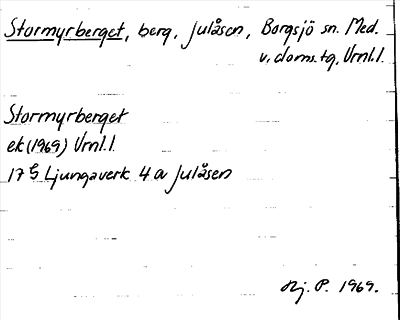 Stormyrberget, berg, Julåsen, Borgsjö sn. Med.
v. doms. tg, Vrnl.l.
Stormyrberget
ek (1969) Vrnl.l.
17 G Ljungaverk 4 a Julåsen
Hj. P. 1969.